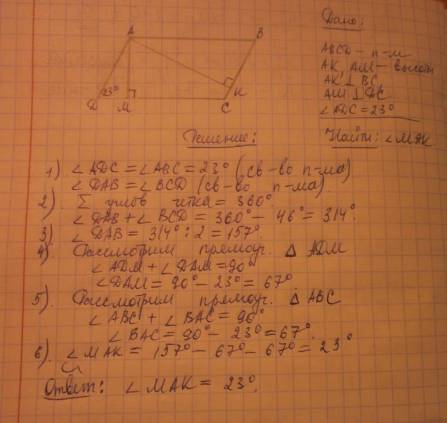 A
B
23°
D
M
C
K
Дано:
ABCD - п-м
AK, AM - высоты
AK ⊥ BC
AM ⊥ DC
∠ADC = 23°
Найти: ∠MAK
Решение:
1) ∠ADC = ∠ABC = 23° (св-во п-ма)
∠DAB = ∠BCD (св-во п-ма)
2) Σ углов 4-ка = 360°
∠DAB + ∠BCD = 360° - 46° = 314°.
3) ∠DAB = 314° : 2 = 157°.
4) Рассмотрим прямоуг. △ ADM
∠ADM + ∠DAM = 90°
∠DAM = 90° - 23° = 67°
5). Рассмотрим прямоуг. △ ABC
∠ABC + ∠BAC = 90°
∠BAC = 90° - 23° = 67°.
6) ∠MAK = 157° - 67° - 67° = 23°
Ответ: ∠MAK = 23°.